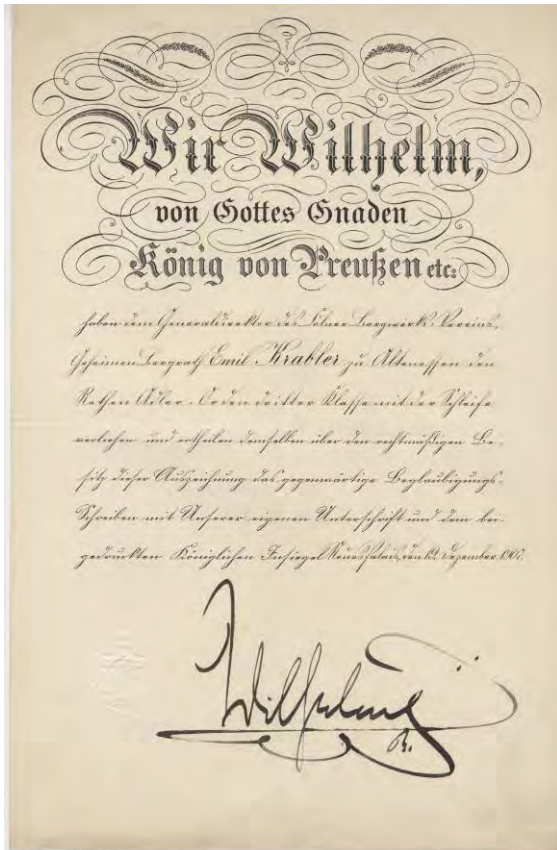 Wir Wilhelm,
von Gottes Gnaden
König von Preußen etc:
haben dem Generaldirektor des Cölner Bergwerks-Vereins,
Geheimen Bergrath Emil Krabler zu Altenessen den
Rothen Adler-Orden dritter Klasse mit der Schleife
verliehen und ertheilen demselben über den rechtmäßigen Be-
sitz dieser Auszeichnung das gegenwärtige Beglaubigungs-
Schreiben mit Unserer eigenen Unterschrift und dem bei-
gedruckten Königlichen Insiegel Neues Palais, den Dezember 1907.
Wilhelm
R.